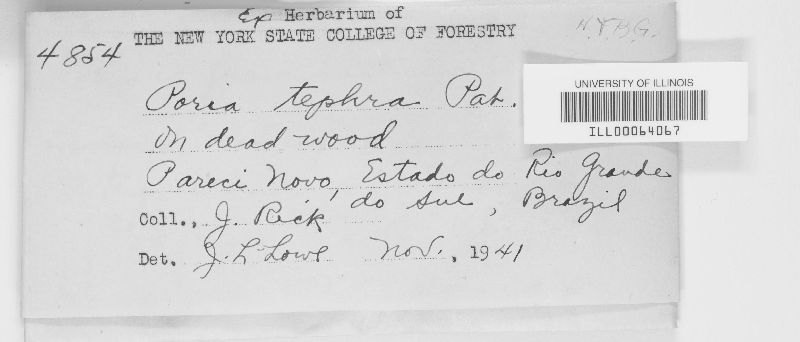 Ex Herbarium of
THE NEW YORK STATE COLLEGE OF FORESTRY
N.Y.B.G.
4854
UNIVERSITY OF ILLINOIS
ILL00064067
Poria tephra Pat.
On dead wood
Pareci Novo, Estado do Rio Grande
do Sul, Brazil
Coll., J. Rick
Det. J. L. Lowe Nov., 1941